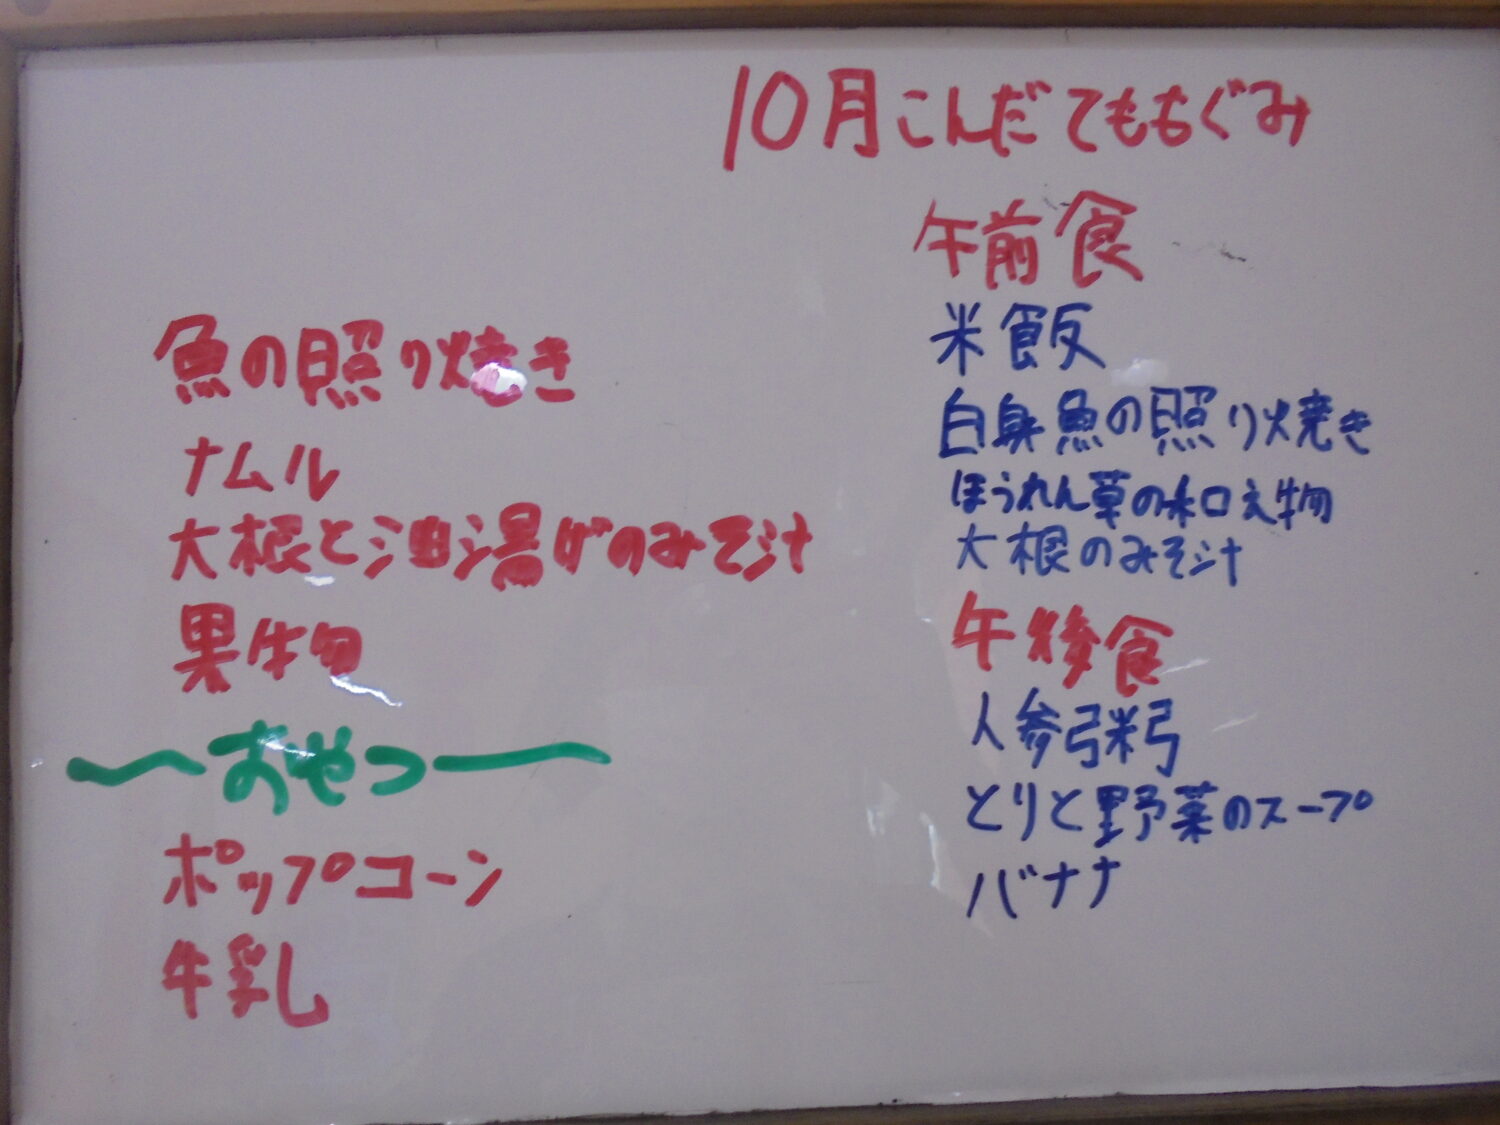 10月こんだてももぐみ
魚の照り焼き
ナムル
大根と油湯げのみそ汁
果物
おやつ
ポップコーン
牛乳
午前食
米飯
白身魚の照り焼き
ほうれん草の和え物
大根のみそ汁
午後食
人参粥
とりと野菜のスープ
バナナ